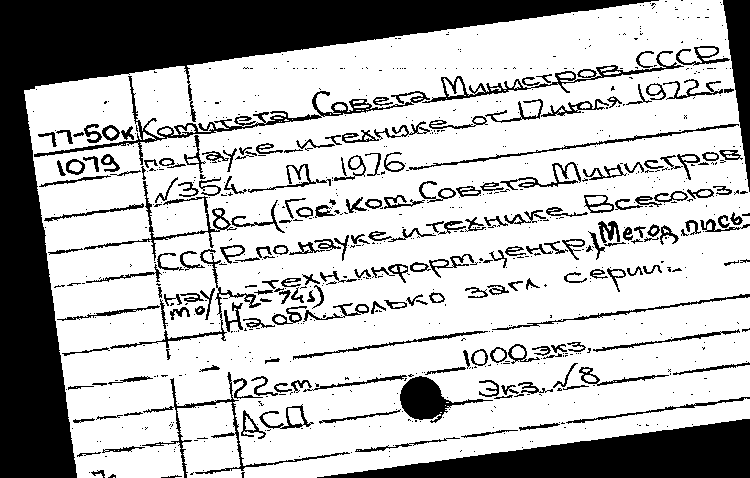 77-50к Комитета Совета Министров СССР
1079 по науке и технике от 17 июля 1972 г.
№354. М., 1976.
8с. (Гос. Ком. Совета Министров
СССР по науке и технике Всесоюз.
науч.-техн. информ. центр.) Метод. пись-
мо/
На обл. только загл. серии.
1000 экз.
22 см. Экз. №8
ДСП